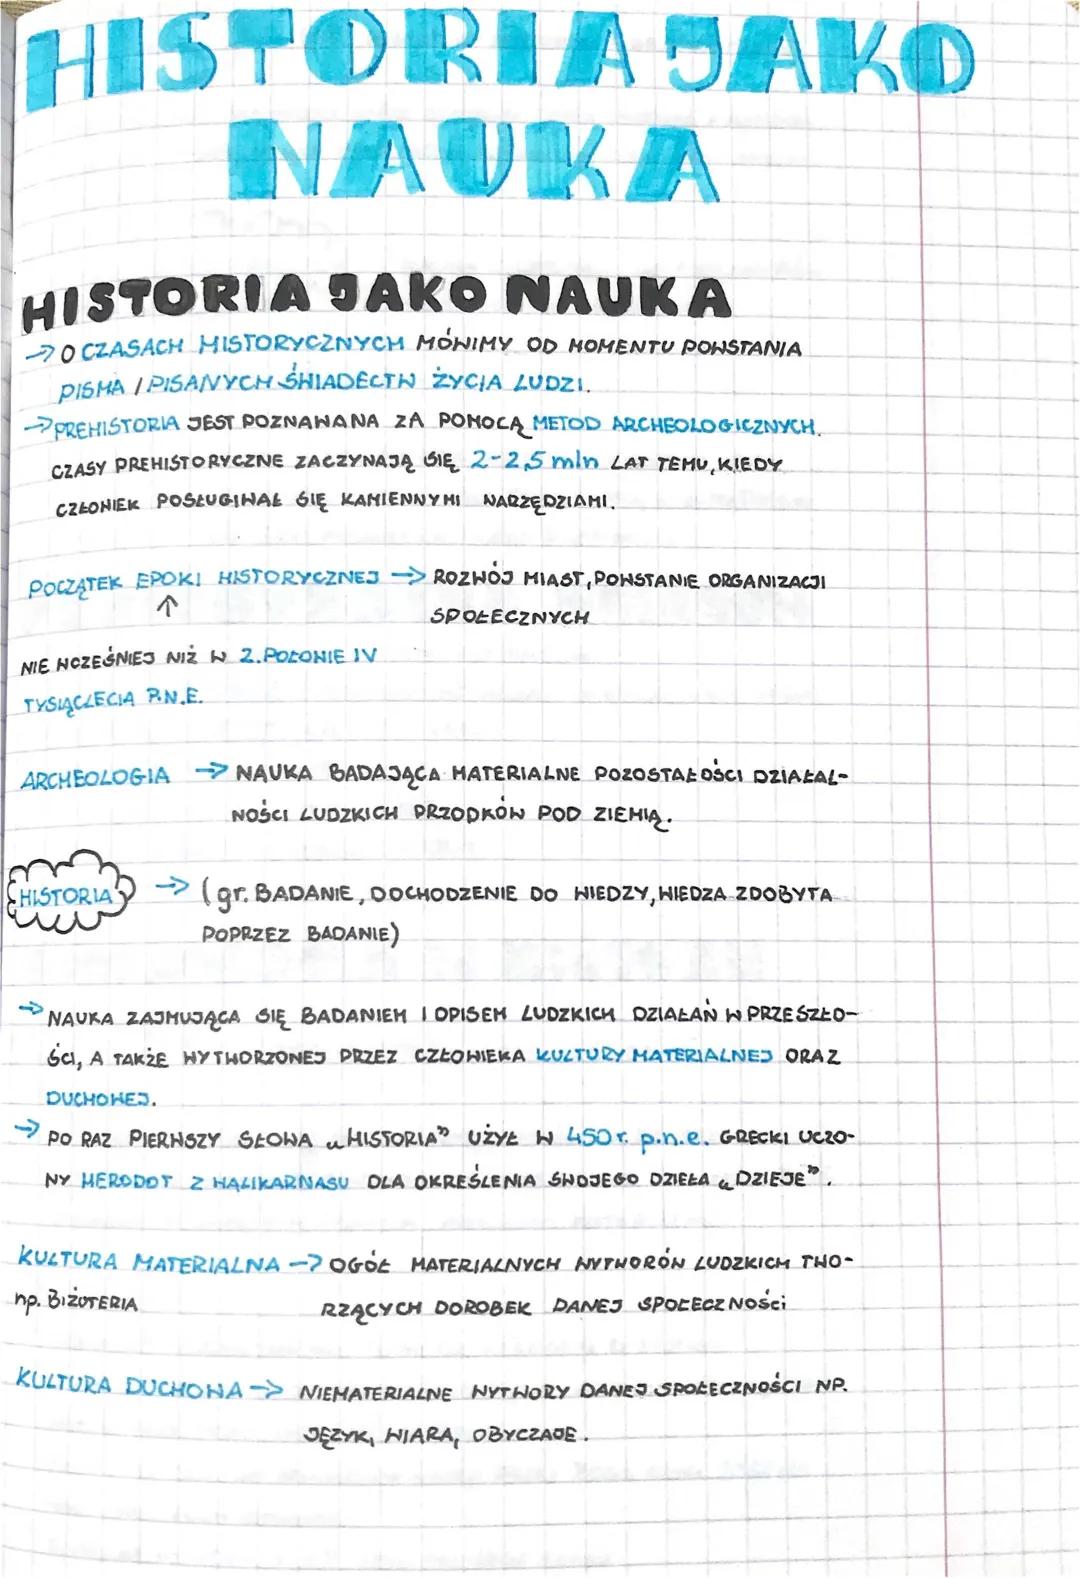 HISTORIA JAKO
NAUKA
HISTORIA JAKO NAUKA
→ O CZASACH HISTORYCZNYCH MÓWIMY OD MOMENTU POWSTANIA
PISMA / PISANYCH ŚWIADECTW ŻYCIA LUDZI.
→ PREHISTORIA JEST POZNAWANA ZA POMOCĄ METOD ARCHEOLOGICZNYCH.
CZASY PREHISTORYCZNE ZACZYNAJĄ SIĘ 2-2,5 mln LAT TEMU, KIEDY
CZŁOWIEK POSŁUGIWAŁ SIĘ KAMIENNYMI NARZĘDZIAMI.
POCZĄTEK EPOKI HISTORYCZNEJ → ROZWÓJ MIAST, POWSTANIE ORGANIZACJI
↑ SPOŁECZNYCH
NIE WCZEŚNIEJ NIŻ W 2. POŁOWIE IV
TYSIĄCLECIA P.N.E.
ARCHEOLOGIA → NAUKA BADAJĄCA MATERIALNE POZOSTAŁOŚCI DZIAŁAL-
NOŚCI LUDZKICH PRZODKÓW POD ZIEMIĄ.
HISTORIA → (gr. BADANIE, DOCHODZENIE DO WIEDZY, WIEDZA ZDOBYTA
POPRZEZ BADANIE)
→ NAUKA ZAJMUJĄCA SIĘ BADANIEM I OPISEM LUDZKICH DZIAŁAŃ W PRZESZŁO-
ŚCI, A TAKŻE WYTWORZONEJ PRZEZ CZŁOWIEKA KULTURY MATERIALNEJ ORAZ
DUCHOWEJ.
→ PO RAZ PIERWSZY SŁOWA „HISTORIA” UŻYŁ W 450 r. p.n.e. GRECKI UCZO-
NY HERODOT Z HALIKARNASU DLA OKREŚLENIA SWOJEGO DZIEŁA „DZIEJE”.
KULTURA MATERIALNA → OGÓŁ MATERIALNYCH WYTWORÓW LUDZKICH TWO-
np. BIŻUTERIA RZĄCYCH DOROBEK DANEJ SPOŁECZNOŚCi
KULTURA DUCHOWA → NIEMATERIALNE WYTWORY DANEJ SPOŁECZNOŚCI NP.
JĘZYK, WIARA, OBYCZAJE.